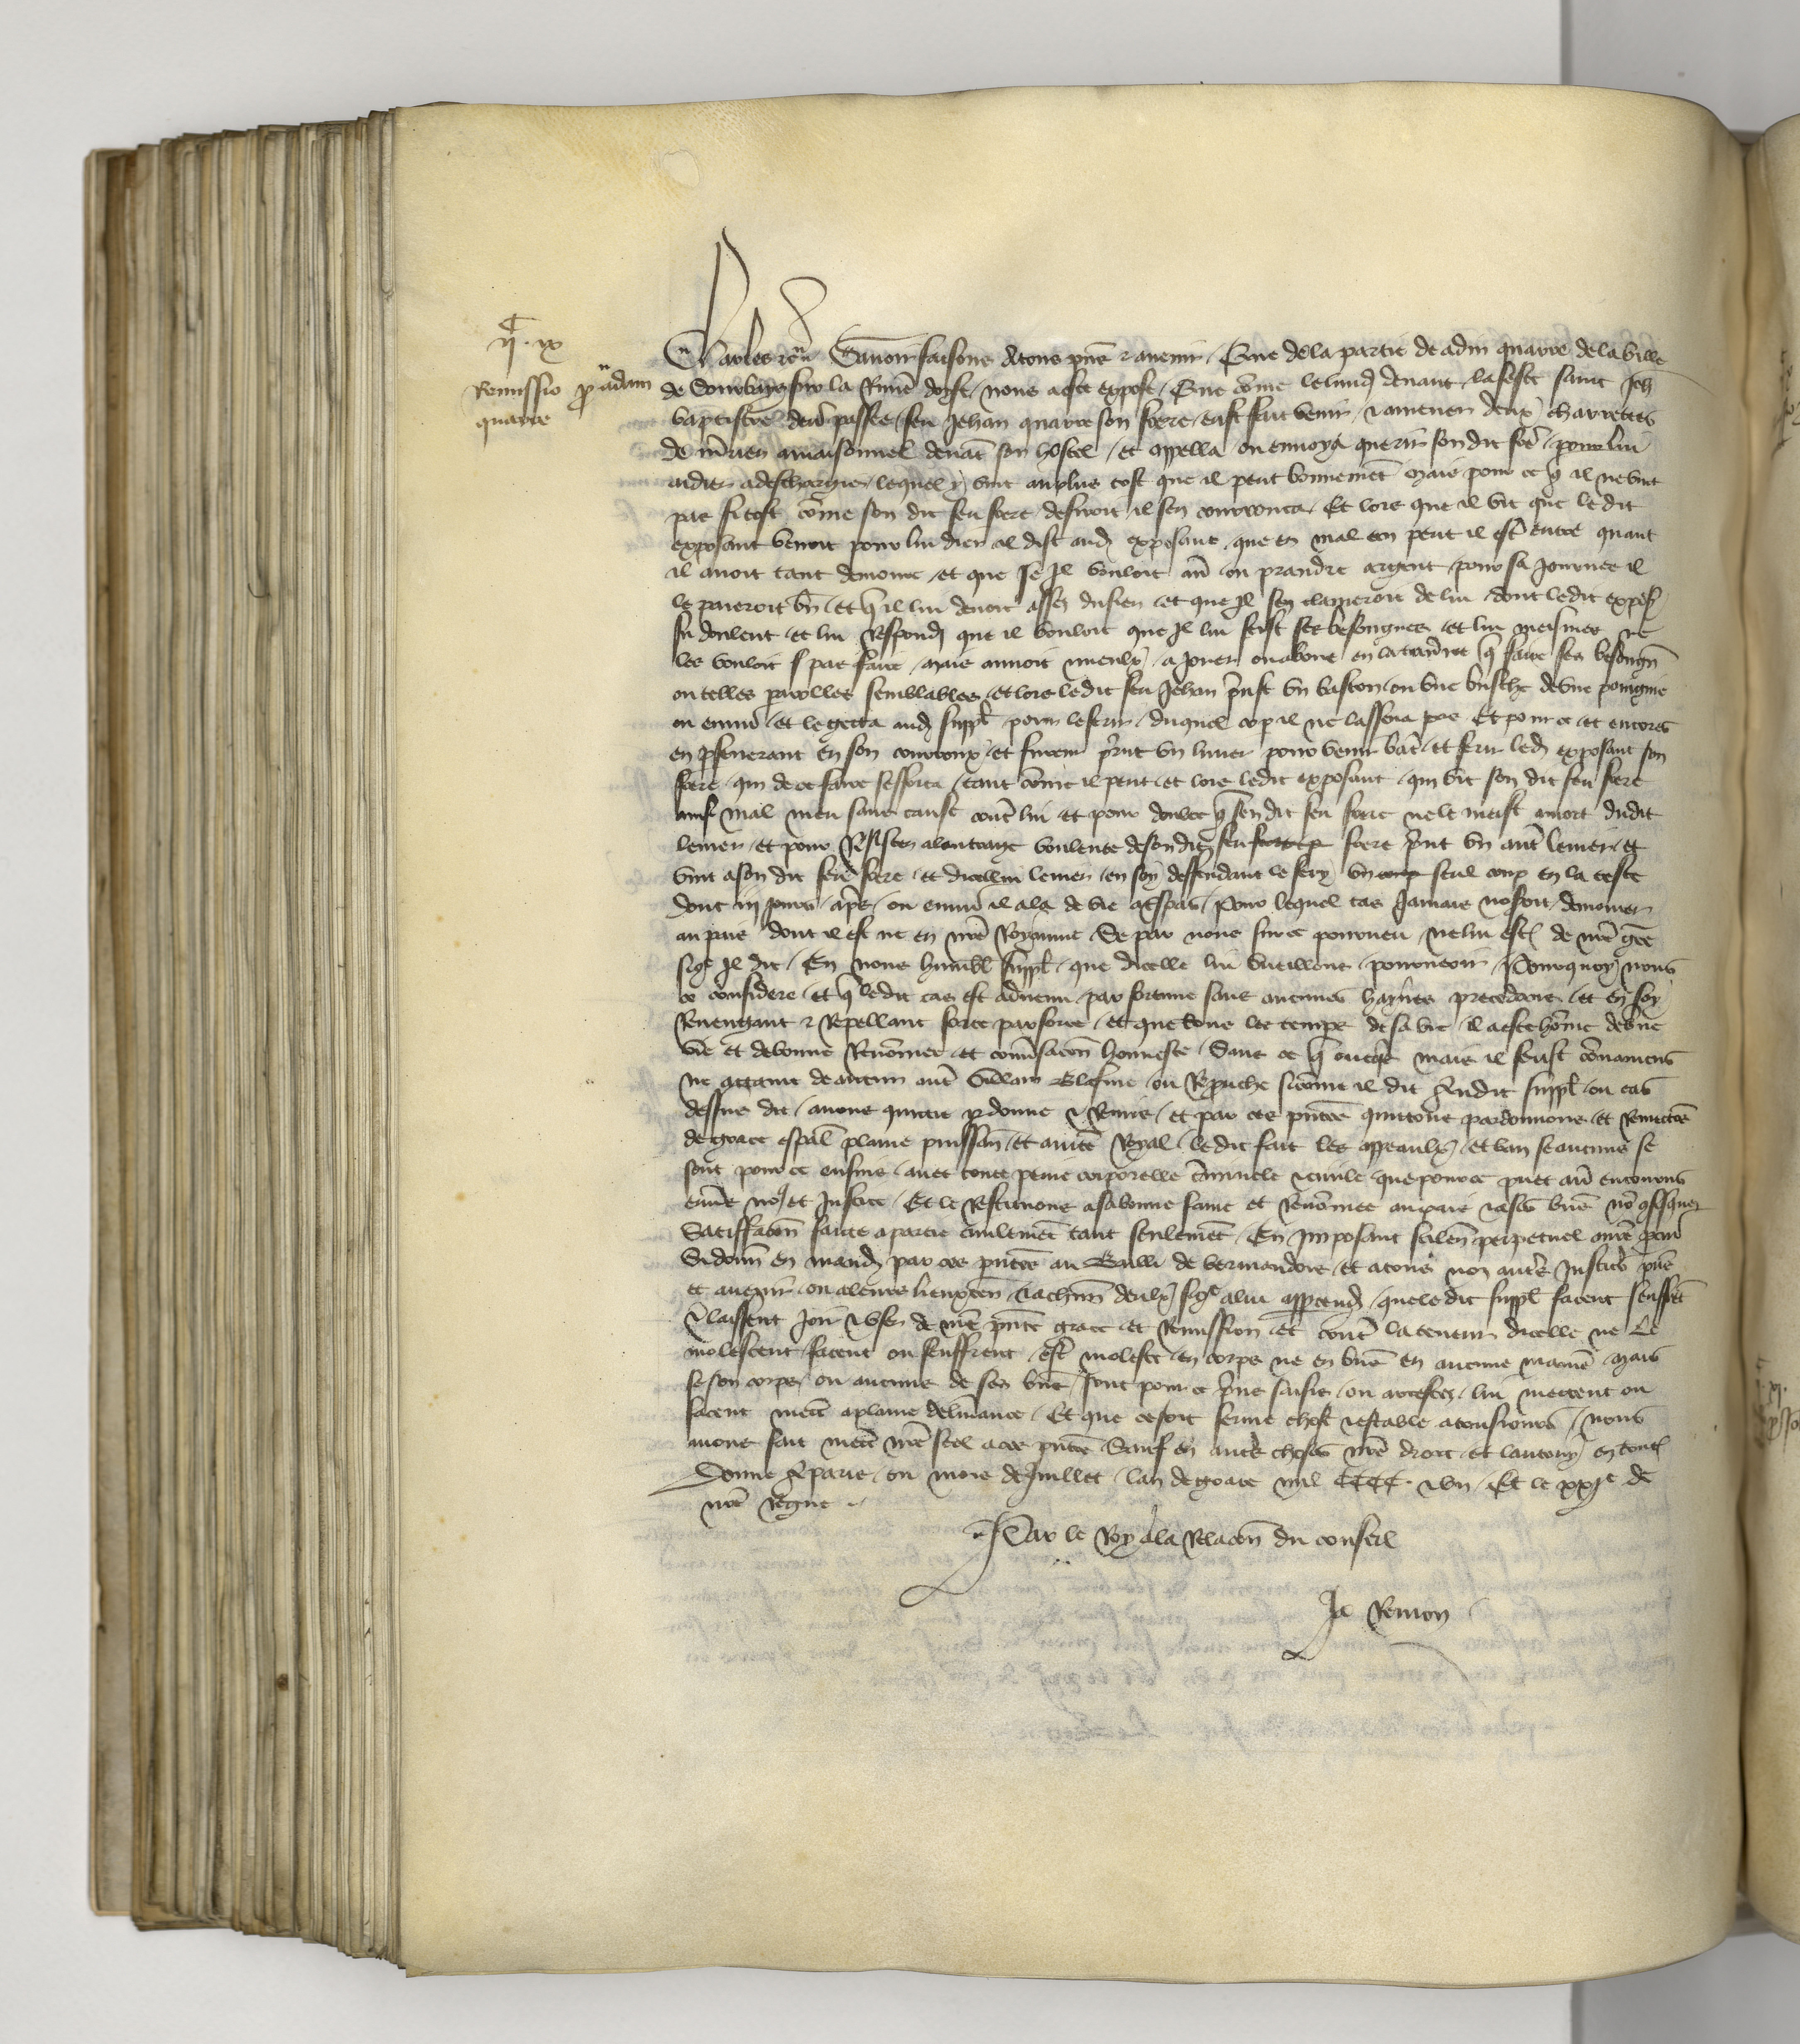 ii^c ix
Remissio pro adam
quarre
Charles etc Savoir faisons atous pns et avenir Que dela partie de adin quarre dela ville
de sur la Riviere doyse nous a este expose Que come le lundi devant lafeste saint Jeh
baptistre derr passee feu Jehan quarre son frere eust fait venir et amener deux charrettes
de mrien amaisonnel devat son hostel et appella ou envoya querir son dit frere pour lui
aidier a deschargier lequel y vint auplus tost que il peut bonnemet mais pour ce q il ne vint
pas si tost come son dit feu frere desiroit il sen courrouca Et lors que il vit que le dit
exposant venoit pour lui dier il dist aud exposant que en mal an peut il estre entre quant
il avoit tant demoure et que se Il vouloit avoir ou prandre argent pour sa Journee il
le paieroit bn et q il lui devoit asses du sien et que Il sen clameroit de lui dont ledit expos
fu dolent et lui Respondi que il vouloit que Il lui feist ses besongnes et lui meismes ne
les vouloit pas faire mais amoit mieulx a Jouer en la q faire ses besongn
ou telles parolles semblables et lors ledit feu Jehan prist un baston ou une busche de une poingnie
ou environ et le getta aud suppl pour leferir duquel cop il ne lassena pas Et pour ce et encores
en pseverant en son courroux et fureur print un limer pour venir batre et ferir led exposant son
frere qui de ce faire sefforca tant come il peut et lors ledit exposant qui vit son dit feu frere
ainsi mal meu sans cause contre lui et pour doubte q son dit feu frere ne le meist amort dudit
lemier et pour Resister aloutrage voulente desondit feu frere print un autre lemier et
vint ason dit feu frere et dicellui lemier en soy deffendant le fery un seul coup en la teste
dont iii jours apres ou environ il ala de vie atrespas Pour lequel cas Jamais noseroit demourer
au pais dont il est ne en nre Royaume Se par nous sur ce pourveu ne lui estoit de nre grace
sicome Il dit En nous humbl suppl que dicelle lui vueillons pourveoir Pourquoy nous
ce considere et q ledit cas est advenu par fortune sans aucunes haynes precedens et en soy
Revengant et Repellant force par force et que tous les temps de sa vie il a este home de bne
vie et de bonne Renomee et conversacion honneste Sans ce q oncques mais il feust
ne attaint de aucun autre villain Blasme ou Reprouche sicome il dit Audit suppl ou cas
dessus dit avons quictie pdonne et Remis et par ces pntes quictons pardonnons et Remettons
de grace espal plaine puissance et aucte Royal ledit fait les appeaulx et ban se aucuns se
sont pour ce ensuis avec toute peine corporelle criminele et civile que pour ce puet avoir encouru
envers nous et Justice Et le Restituons asabonne fame et Renomee aupais et ases biens non confisquez
Satiffacion faicte a partie civilement tant seulement En Imposant silence perpetuel a nre procureur
Si donns en mandement par ces pntes au Bailli de vermandois et atous noz autres Justiciers pns
et avenir ou aleurs lieuxtenans et achacun deulx si come alui appartendra que le dit suppl facent seuffrent
et laissent Joir et user de nre pnte grace et Remission et contre lateneur dicelle ne Le
molestent facent ou seuffrent estre moleste en corps ne en biens en aucune maniere mais
se son corps ou aucuns de ses biens sont pour ce prins saisis ou arrestes lui mettent ou
facent mettre a plaine delivrance Et que ce soit ferme chose et estable atousjours nous
avons fait mettre nre seel a ces pntes Sauf en autres choses nre droit et lautruy en toutes
Donne a paris ou mois de Juillet lan de grace mil CCCC et un Et le xxj^e de
nre Regne
Par le Roy ala Relacion du conseil
Ja Remon